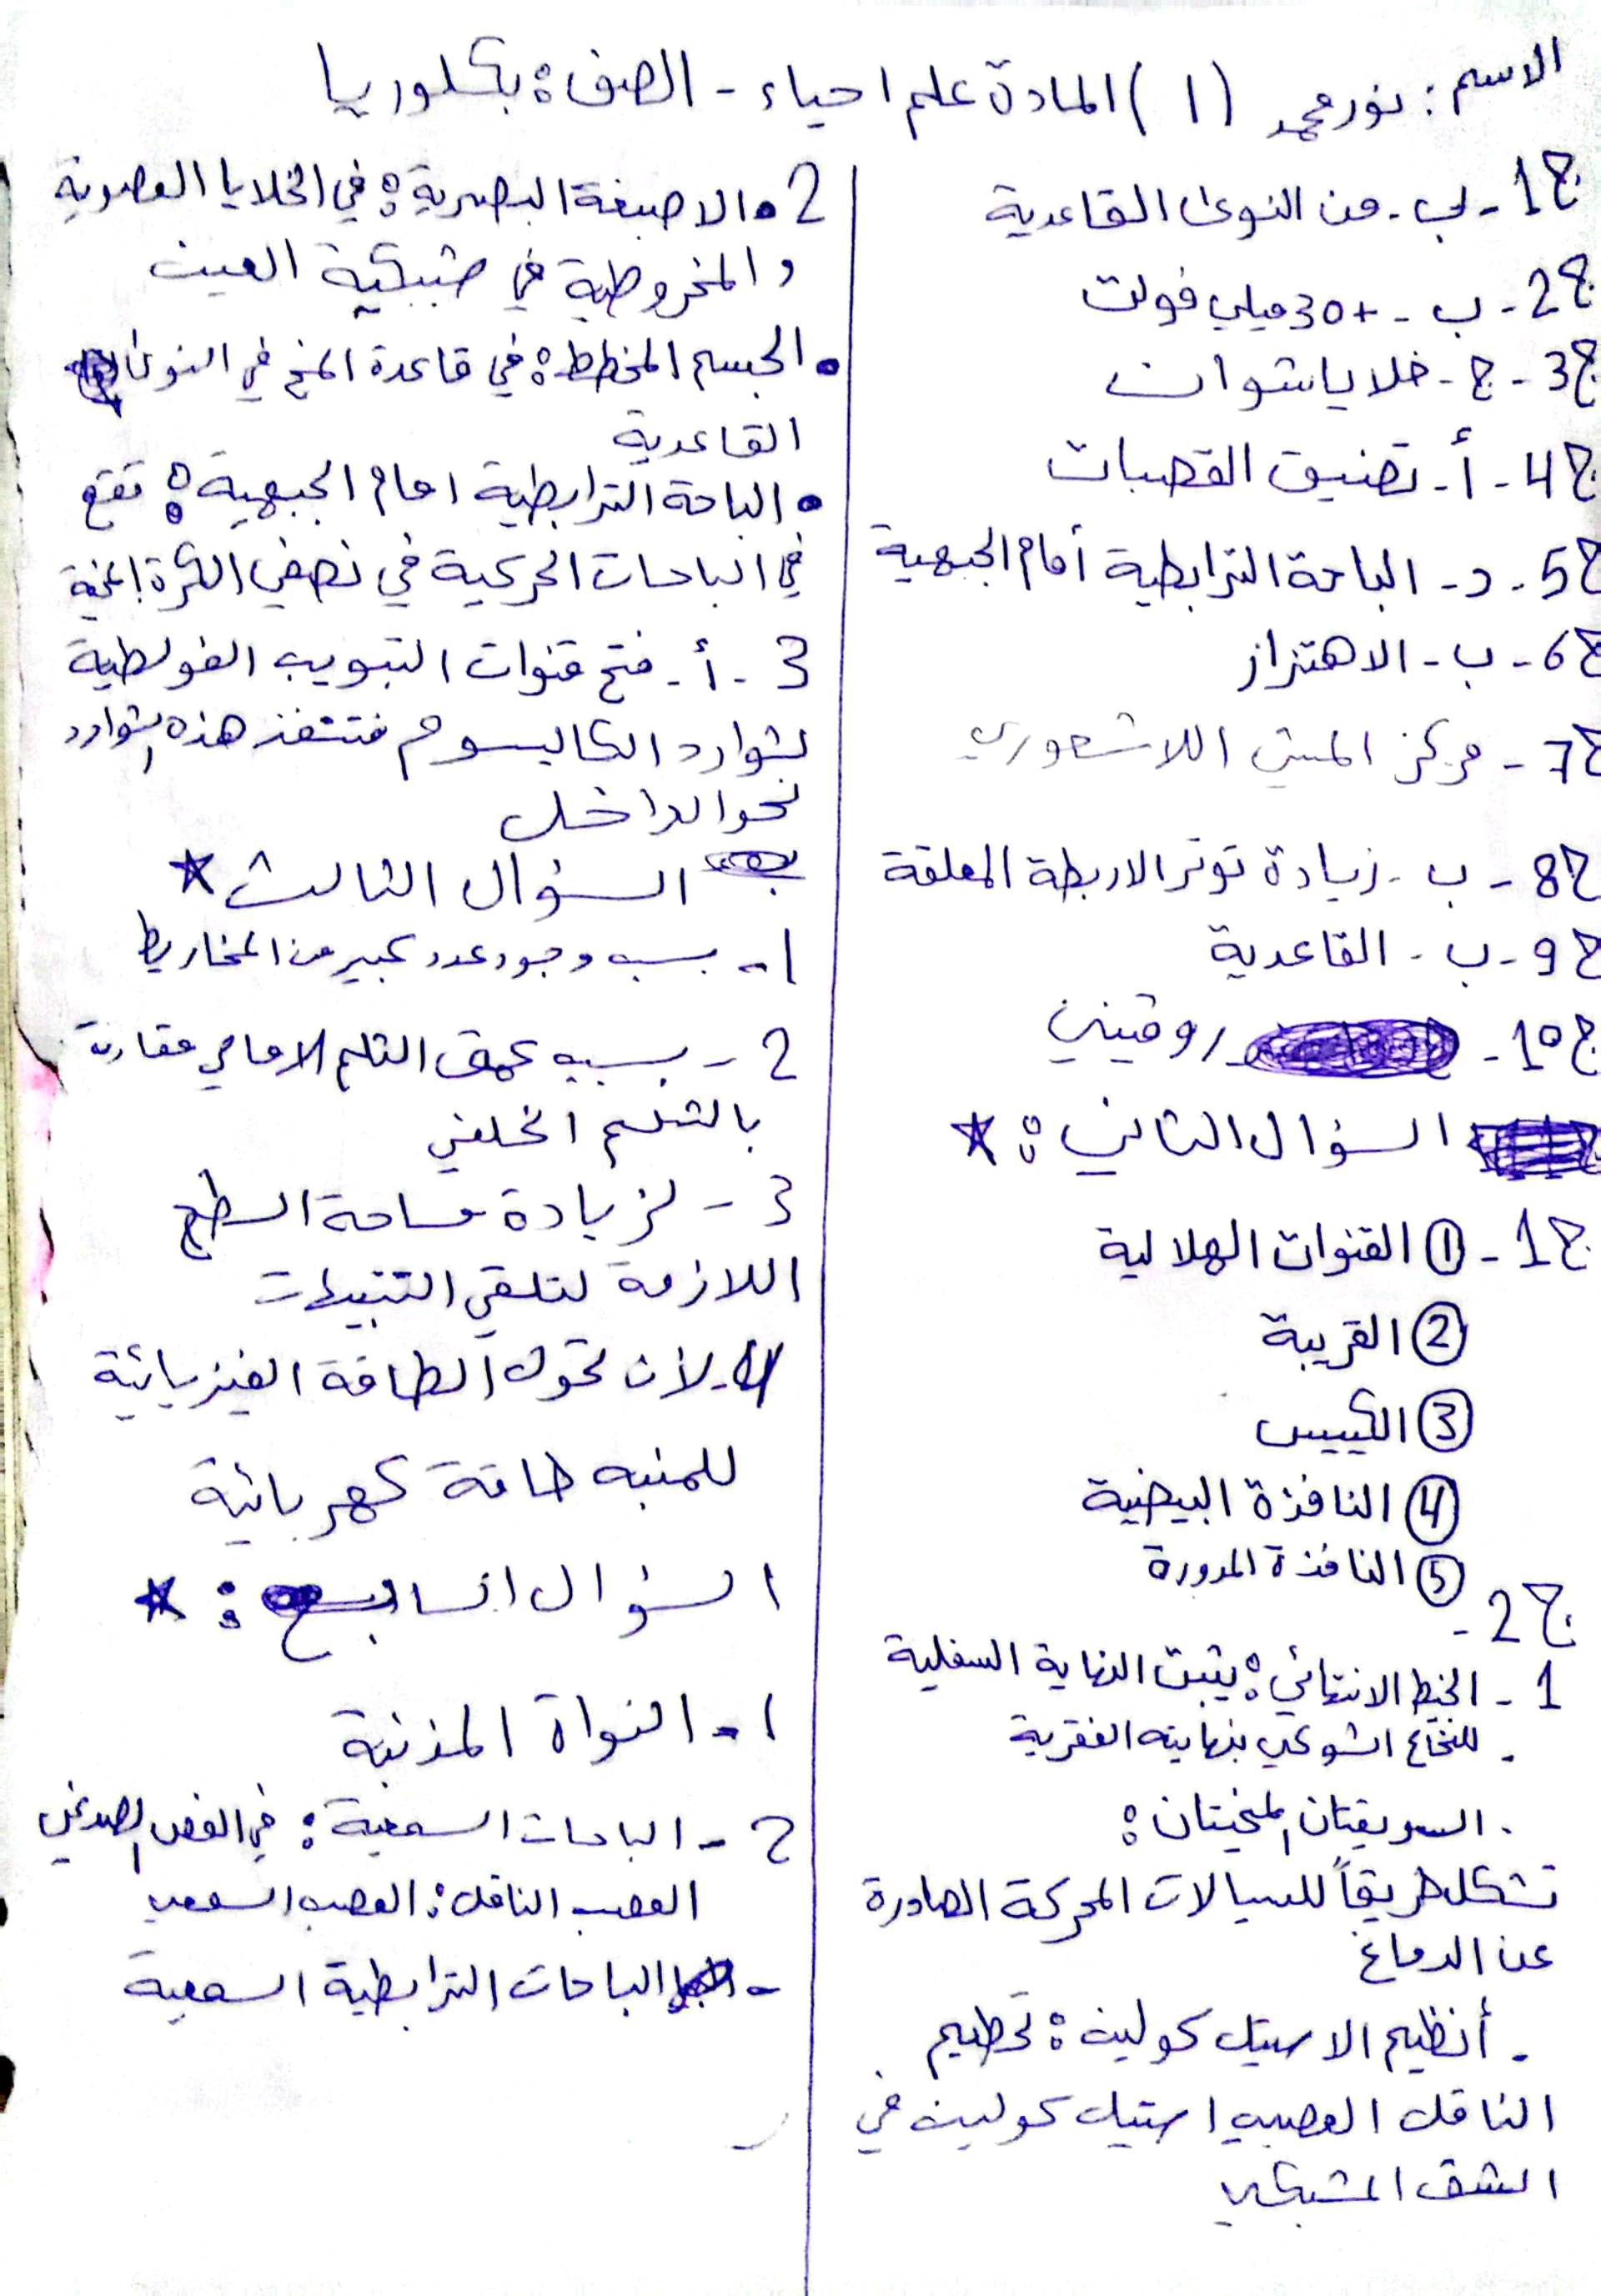 الاسم: نور محمد (1) المادة علم احياء - الصف: بكلوريا
ج1 - ب - من النوى القاعدية
ج2 - ب - +30 ميلي فولت
ج3 - ج - خلايا شوان
ج4 - أ - تضيق القصبات
ج5 - د - الباحة الترابطية أمام الجبهية
ج6 - ب - الاهتزاز
ج7 - مركز المشي اللاشعوري
ج8 - ب - زيادة توتر الاربطة المعلقة
ج9 - ب - القاعدية
ج10 - روقيني
السؤال الثاني: *
ج1 - ① القنوات الهلالية
② القريبة
③ الكييس
④ النافذة البيضية
⑤ النافذة المدورة
ج2 -
1 - الخيط الانتهائي: يثبت النهاية السفلية
للنخاع الشوكي بنهايته الفقرية
. السويقتان المخيتان:
تشكل طريقاً للسيالات المحركة الصادرة
عن الدماغ
. أنظيم الاستيل كولين: تحطيم
الناقل العصبي استيل كولين في
الشق المشبكي
2 • الاصبغة البصرية: في الخلايا العصوية
والمخروطية في شبكية العين
• الجسم المخطط: في قاعدة المخ في النوى
القاعدية
• الباحة الترابطية امام الجبهية: تقع
في الباحات الحركية في نصفي الكرة المخية
3 - أ - فتح قنوات التبويب الفولطية
لشوارد الكالسيوم فتنفذ هذه الشوارد
نحو الداخل
السؤال الثالث *
1 - بسبب وجود عدد كبير من المخاريط
2 - بسبب عمق الثلم الامامي مقارنة
بالثلم الخلفي
3 - لزيادة مساحة السطح
اللازمة لتلقي التنبيهات
4 - لأن تحول الطاقة الفيزيائية
للمنبه طاقة كهربائية
السؤال السابع: *
1 - النواة المذنبة
2 - الباحات السمعية: في الفص الصدغي
العصب الناقل: العصب السمعي
- الباحات الترابطية السمعية